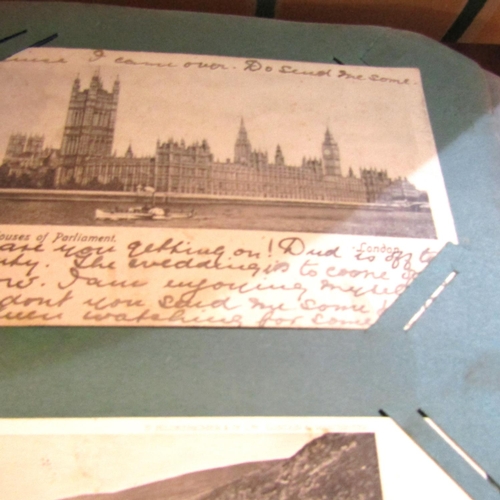 I came over. Do send me some.
ouses of Parliament.
London
are you getting on! Dad is off to
The wedding is to come
I am enjoying myse
dont you send me some
been watching for some